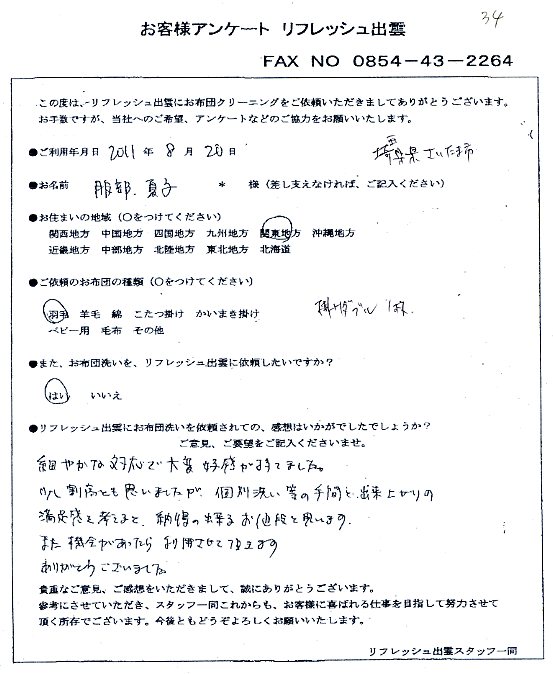 34
お客様アンケート リフレッシュ出雲
FAX NO 0854-43-2264
この度は、リフレッシュ出雲にお布団クリーニングをご依頼いただきましてありがとうございます。
お手数ですが、当社へのご希望、アンケートなどのご協力をお願いいたします。
●ご利用年月日 2011 年 8 月 20 日 埼玉県さいたま市
●お名前 服部 夏子 * 様(差し支えなければ、ご記入ください)
●お住まいの地域(〇をつけてください)
関西地方 中国地方 四国地方 九州地方 関東地方 沖縄地方
近畿地方 中部地方 北陸地方 東北地方 北海道
●ご依頼のお布団の種類(〇をつけてください)
羽毛 羊毛 綿 こたつ掛け かいまき掛け 掛けダブル 1枚
ベビー用 毛布 その他
●また、お布団洗いを、リフレッシュ出雲に依頼したいですか?
はい いいえ
●リフレッシュ出雲にお布団洗いを依頼されての、感想はいかがでしたでしょうか?
ご意見、ご要望をご記入くださいませ。
細やかな対応で大変好感が持てました。
少し割高とも思いましたが、個別洗い等の手間と出来上がりの
満足感を考えると、納得の出来るお値段と思います。
また機会があったら利用させて頂きます
ありがとうございました。
貴重なご意見、ご感想をいただきまして、誠にありがとうございます。
参考にさせていただき、スタッフ一同これからも、お客様に喜ばれる仕事を目指して努力させて
頂く所存でございます。今後ともどうぞよろしくお願いいたします。
リフレッシュ出雲スタッフ一同